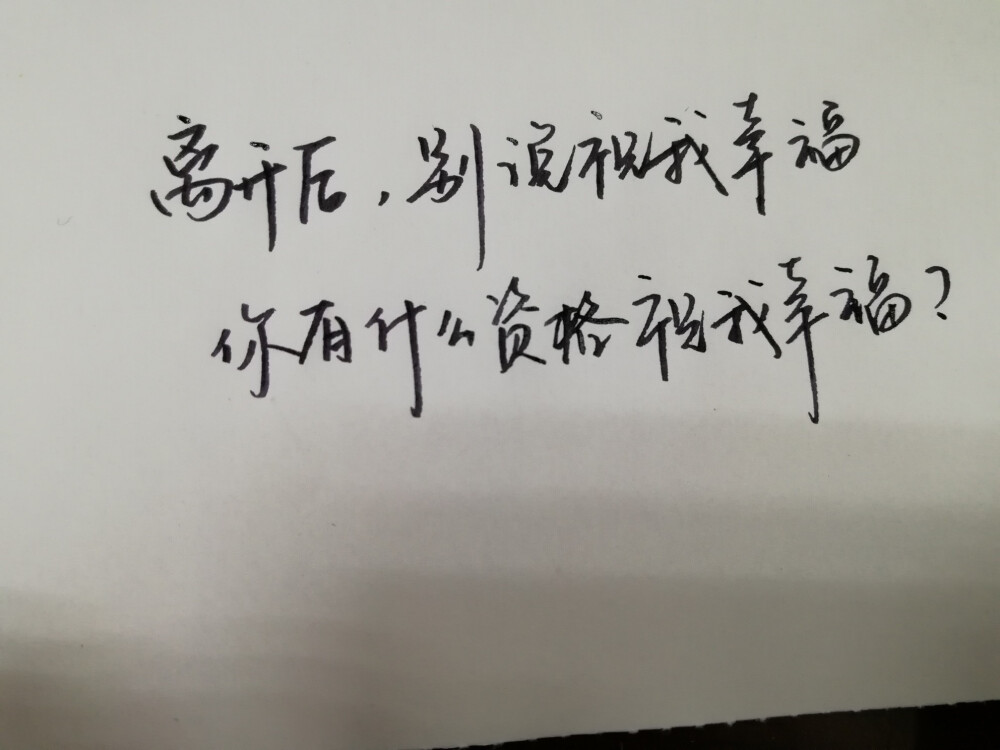 离开后,别说祝我幸福
你有什么资格祝我幸福?